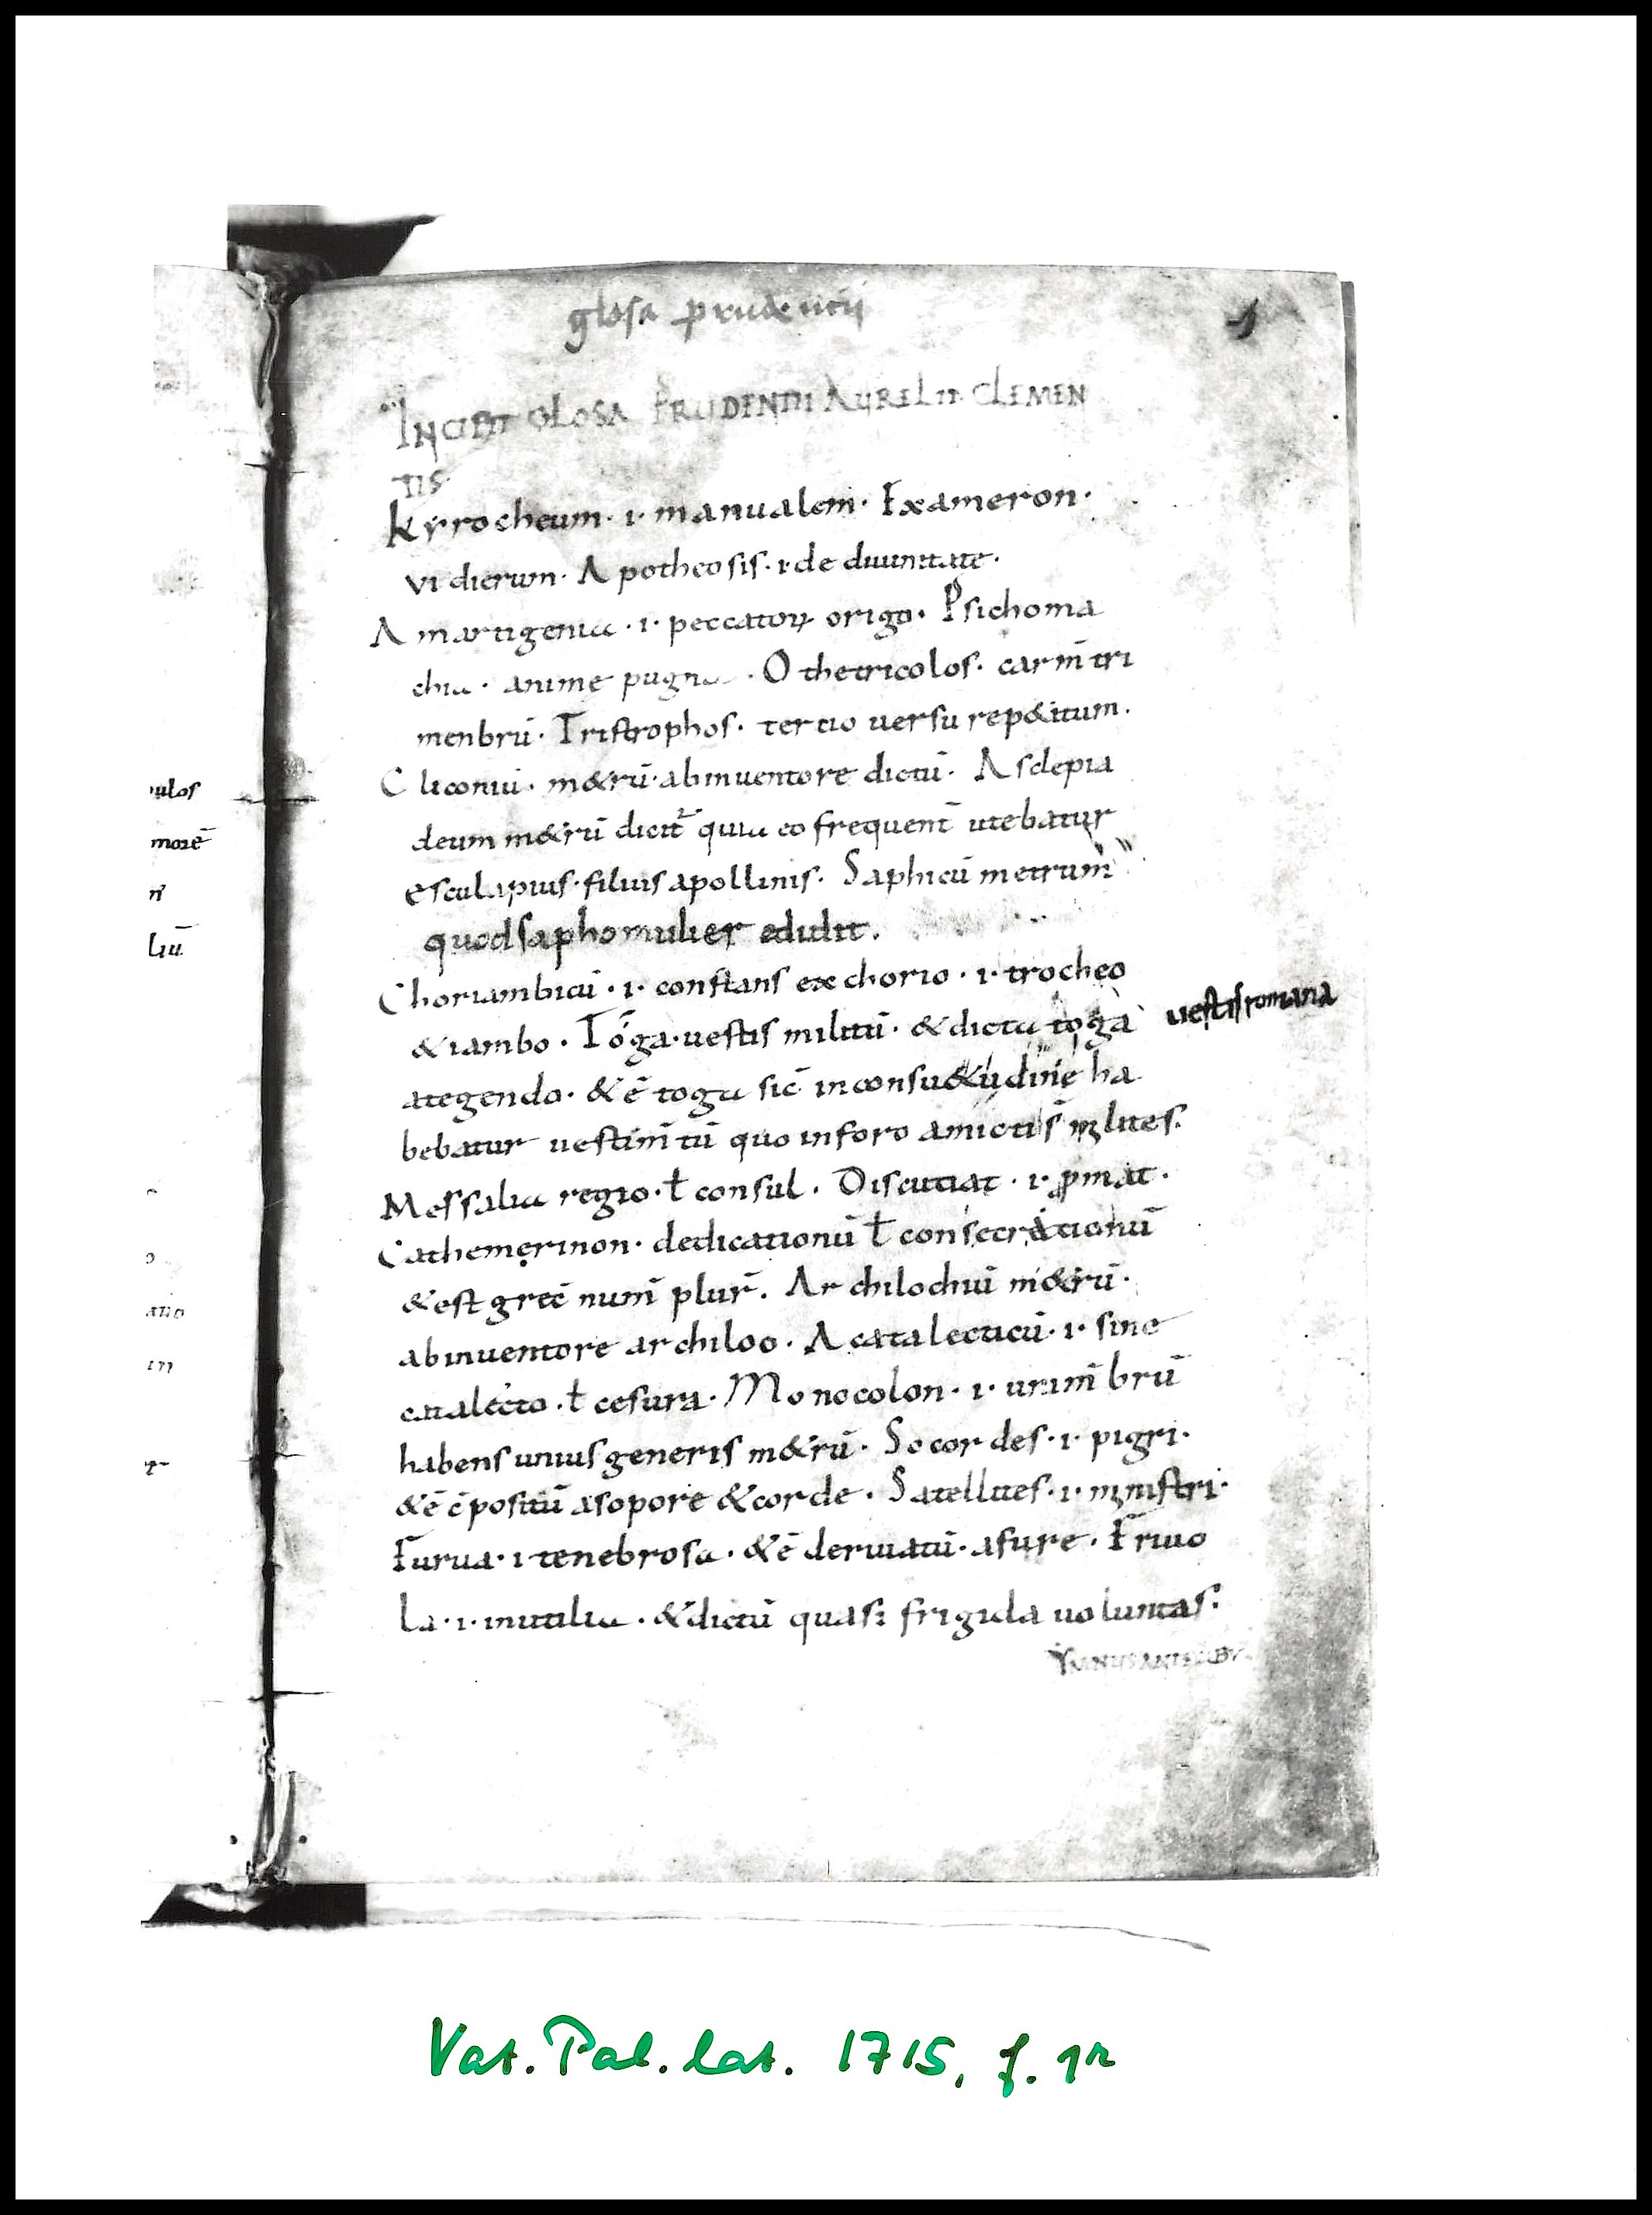 glosa prudentij
1
INCIPIT GLOSA PRUDENTII AURELII CLEMEN
TIS
Kyrocheum · i · manualem · Exameron ·
vi dierum · Apotheosis · i · de diuinitate ·
Amartigenia · i · peccatoꝝ origo · Psichoma
chia · anime pugna · Othetricolos · carm̄ tri
menbrū · Tristrophos · tertio uersu rep&itum ·
Cliconiū · m&rū · ab inuentore dictū · Asclepia
deum m&rū dicit᷑ quia eo frequent̄ utebatur
esculapius · filius apollinis · Saphicū metrum
quod sapho mulier edidit ·
Choriambicū · i · constans ex chorio · i · trocheo
& iambo · Toga · uestis militū · & dicta toga uestis romana
a tegendo · & ē toga sic̄ in consu&udine ha
bebatur uestim̄tū quo in foro amicti s̄ milites ·
Messalia regio · ł consul · Discutiat · i · p̱mat ·
Cathemerinon · dedicationū ł consecrationū
& est grec̄ num̄ plur̄ · Archilochiū m&rū ·
ab inuentore archiloo · Acatalecticū · i · sine
catalecto · ł cesura · Monocolon · i · unim̄brū
habens unius generis m&rū · Socordes · i · pigri ·
& ē c̄positū a sopore & corde · Satellites · i · ministri ·
Furua · i · tenebrosa · & ē deriuatū · a fure · Friuo
la · i · inutilia · & dictū quasi frigida uoluntas :
ulos
morē
n
liū
in
Vat. Pal. lat. 1715, f. 1r